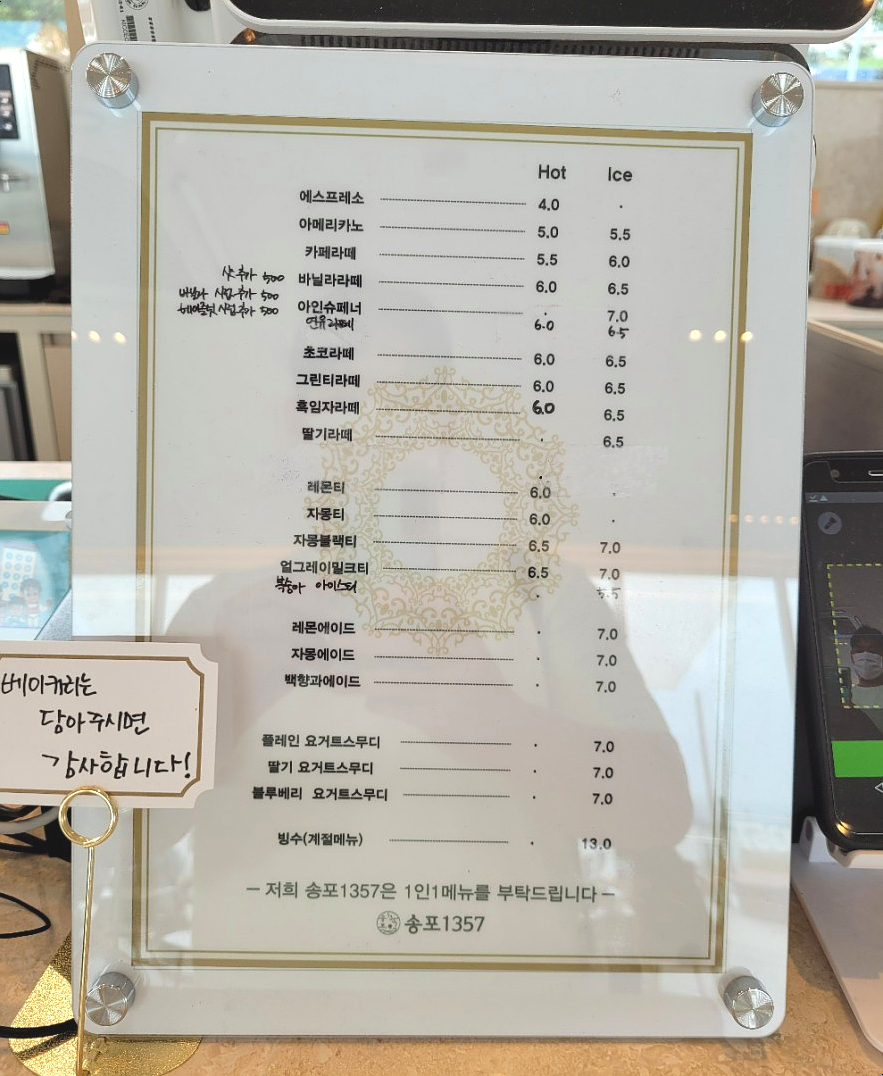 Hot Ice
에스프레소 4.0 .
아메리카노 5.0 5.5
카페라떼 5.5 6.0
샷추가 500
바닐라라떼 6.0 6.5
바닐라 시럽추가 500
헤이즐넛 시럽추가 500
아인슈페너 . 7.0
연유라떼 6.0 6.5
초코라떼 6.0 6.5
그린티라떼 6.0 6.5
흑임자라떼 6.0 6.5
딸기라떼 . 6.5
레몬티 6.0 .
자몽티 6.0 .
자몽블랙티 6.5 7.0
얼그레이밀크티 6.5 7.0
복숭아 아이스티 . 5.5
레몬에이드 . 7.0
자몽에이드 . 7.0
백향과에이드 . 7.0
베이커리는
담아주시면
감사합니다!
플레인 요거트스무디 . 7.0
딸기 요거트스무디 . 7.0
블루베리 요거트스무디 . 7.0
빙수(계절메뉴) . 13.0
– 저희 송포1357은 1인1메뉴를 부탁드립니다 –
송포1357